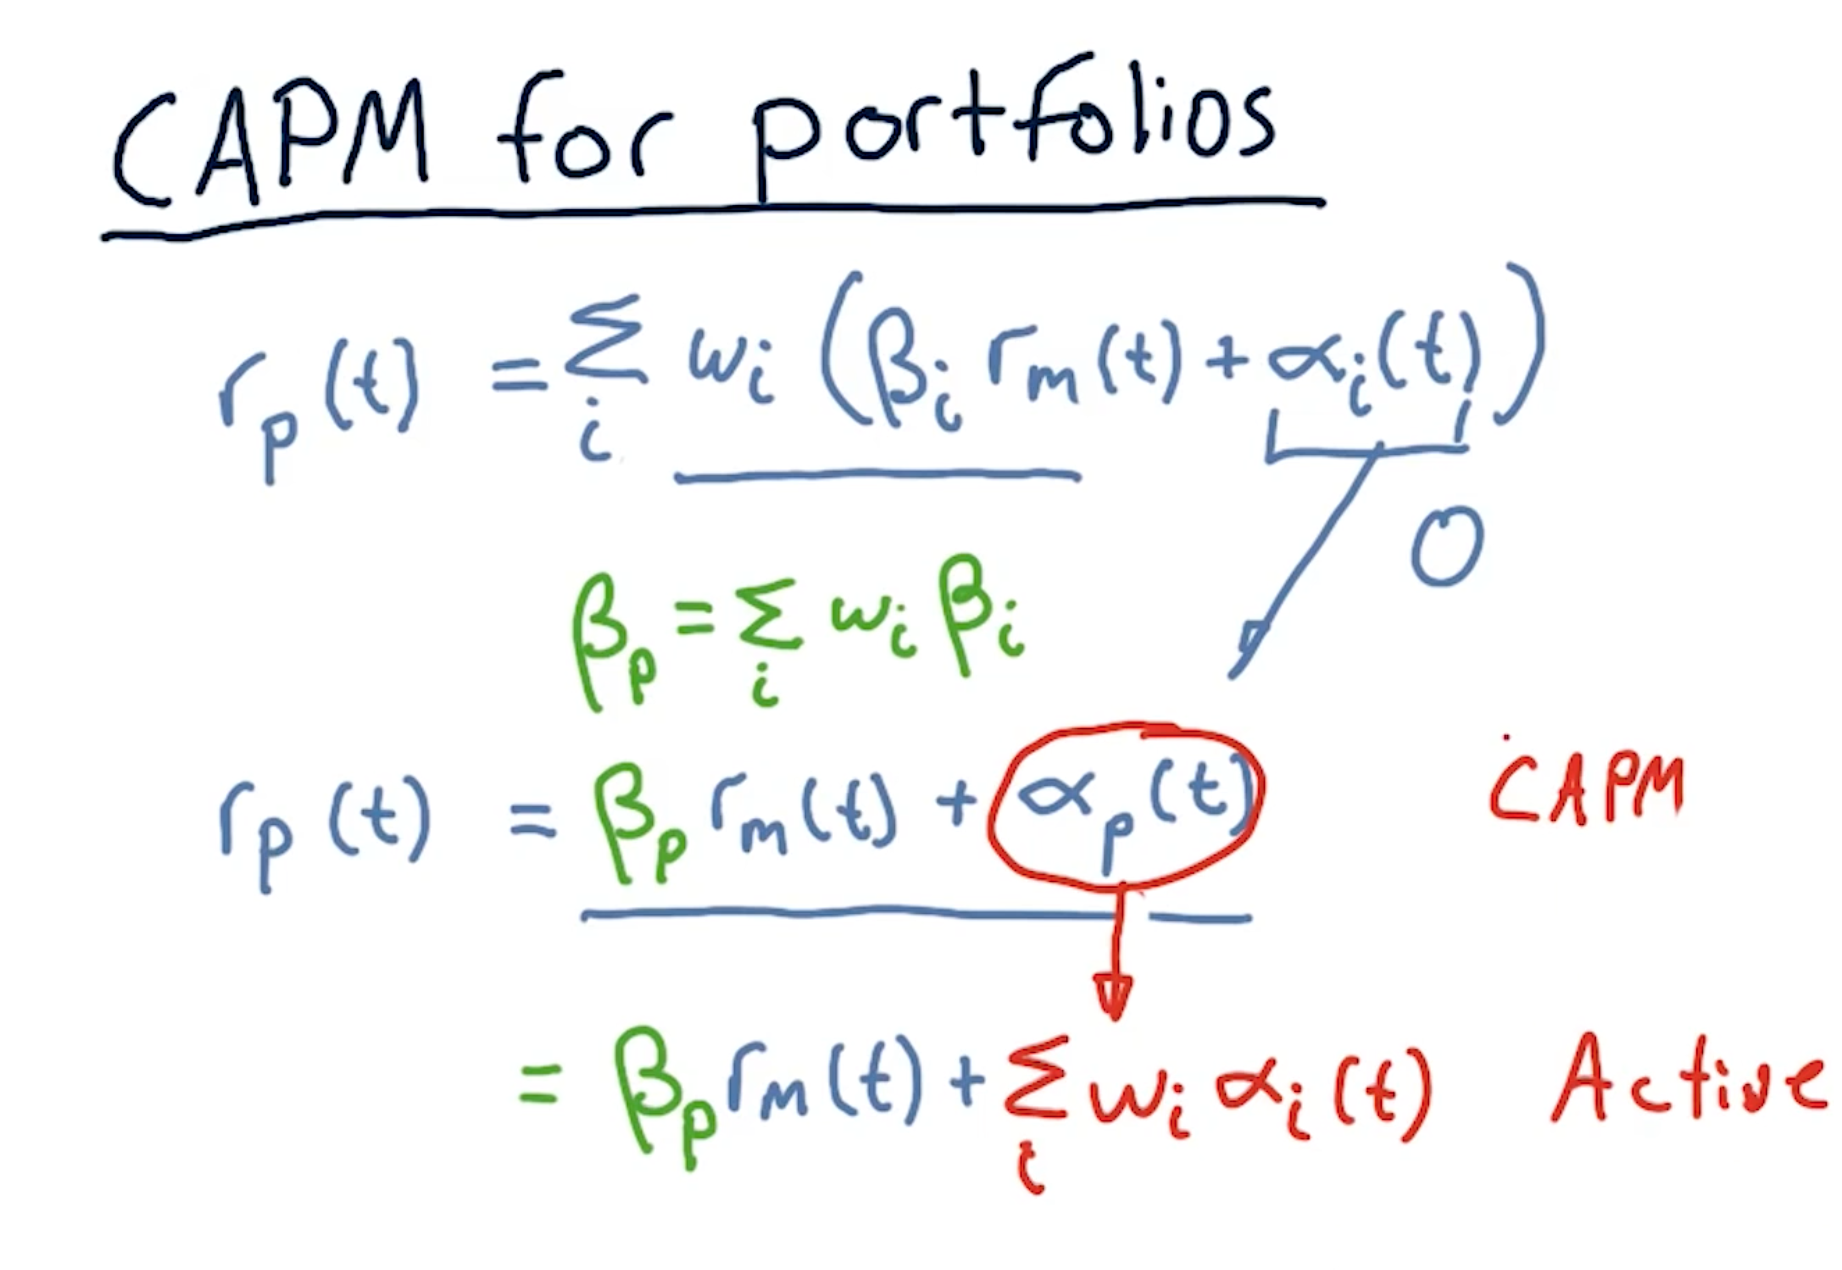 CAPM for portfolios
rp(t) = Σi wi (βi rm(t) + αi(t))
0
βp = Σi wi βi
rp(t) = βp rm(t) + αp(t) CAPM
= βp rm(t) + Σi wi αi(t) Active